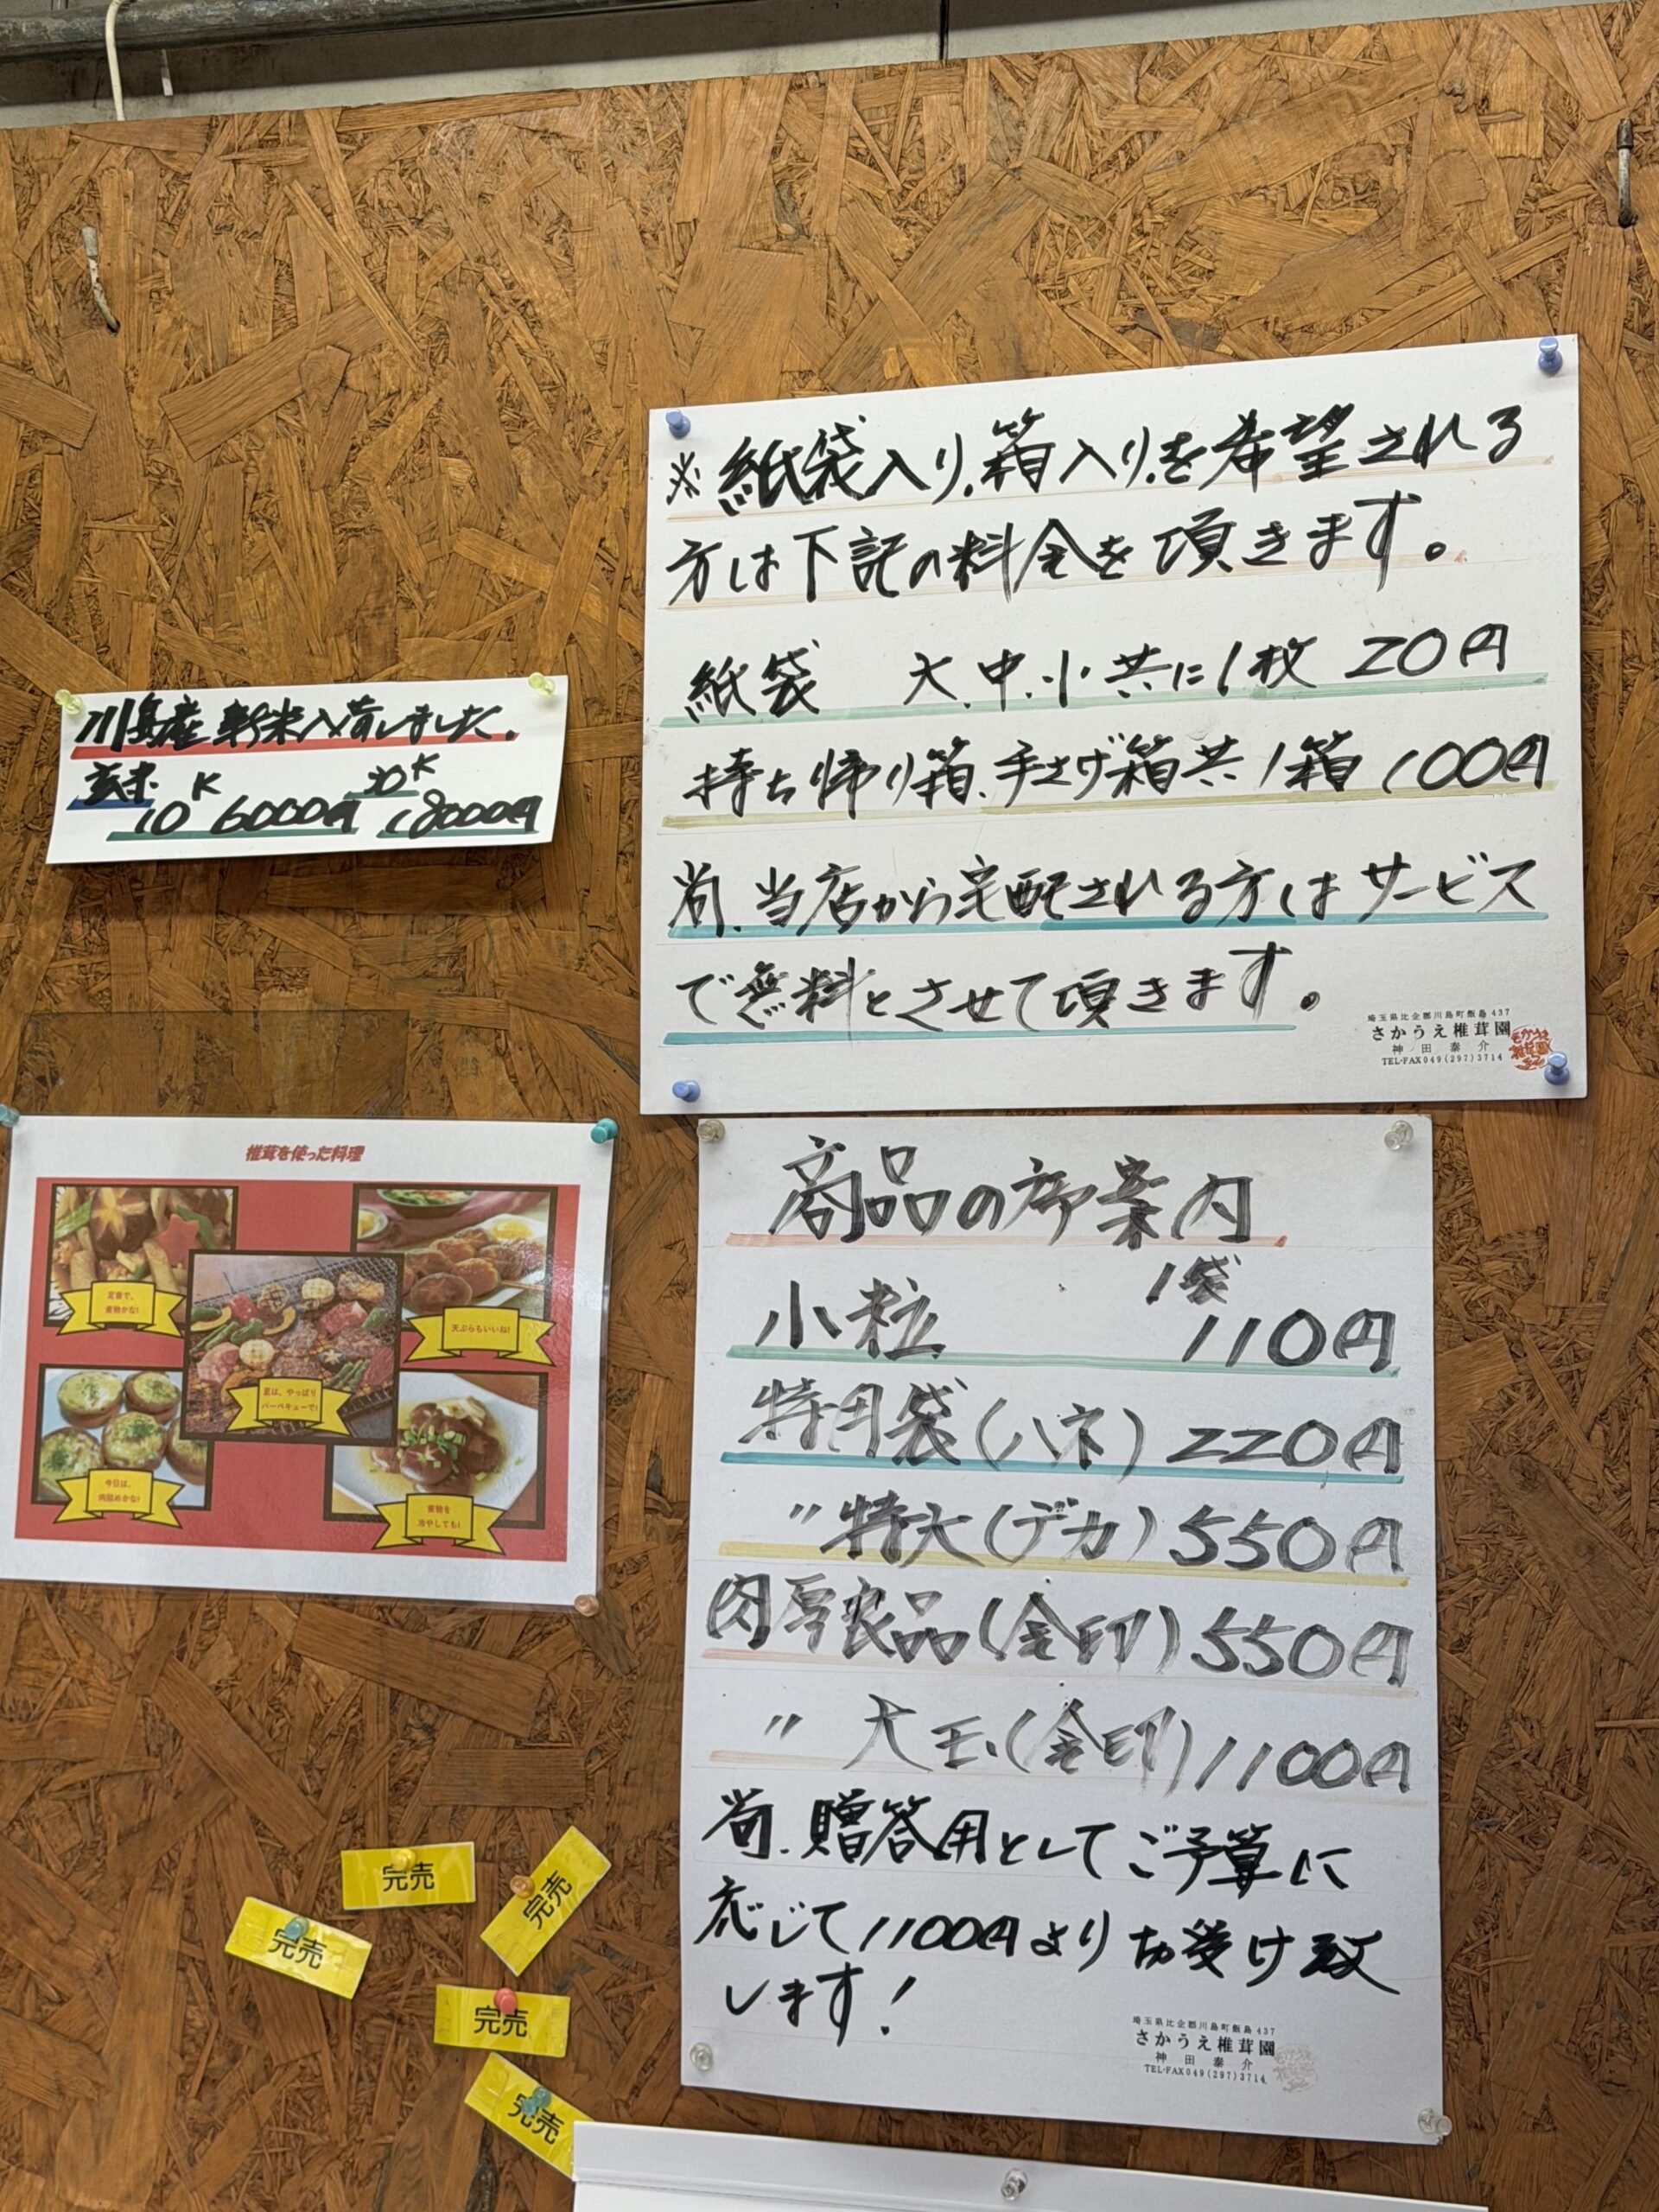 ※紙袋入り、箱入りを希望される
方は下記の料金を頂きます。
紙袋 大、中、小、共に1枚 20円
持ち帰り箱、手さげ箱共1箱 100円
尚、当店から宅配される方はサービス
で無料とさせて頂きます。
埼玉県比企郡川島町飯島437
さかうえ椎茸園
神田泰介
TEL・FAX049(297)3714
川島産新米入荷しました。
玄米 10K 6000円 30K 18000円
椎茸を使った料理
定番で、
煮物かな!
天ぷらもいいね!
夏は、やっぱり
バーベキューで!
今日は、
肉詰めかな!
煮物を
冷やしても!
商品の御案内
1袋
小粒 110円
特用袋(ハネ) 220円
〃特大(デカ) 550円
肉厚良品(金印) 550円
〃 大玉(金印) 1100円
尚、贈答用としてご予算に
応じて1100円よりお受け致
します!
埼玉県比企郡川島町飯島437
さかうえ椎茸園
神田泰介
TEL・FAX049(297)3714
完売
完売
完売
完売
完売